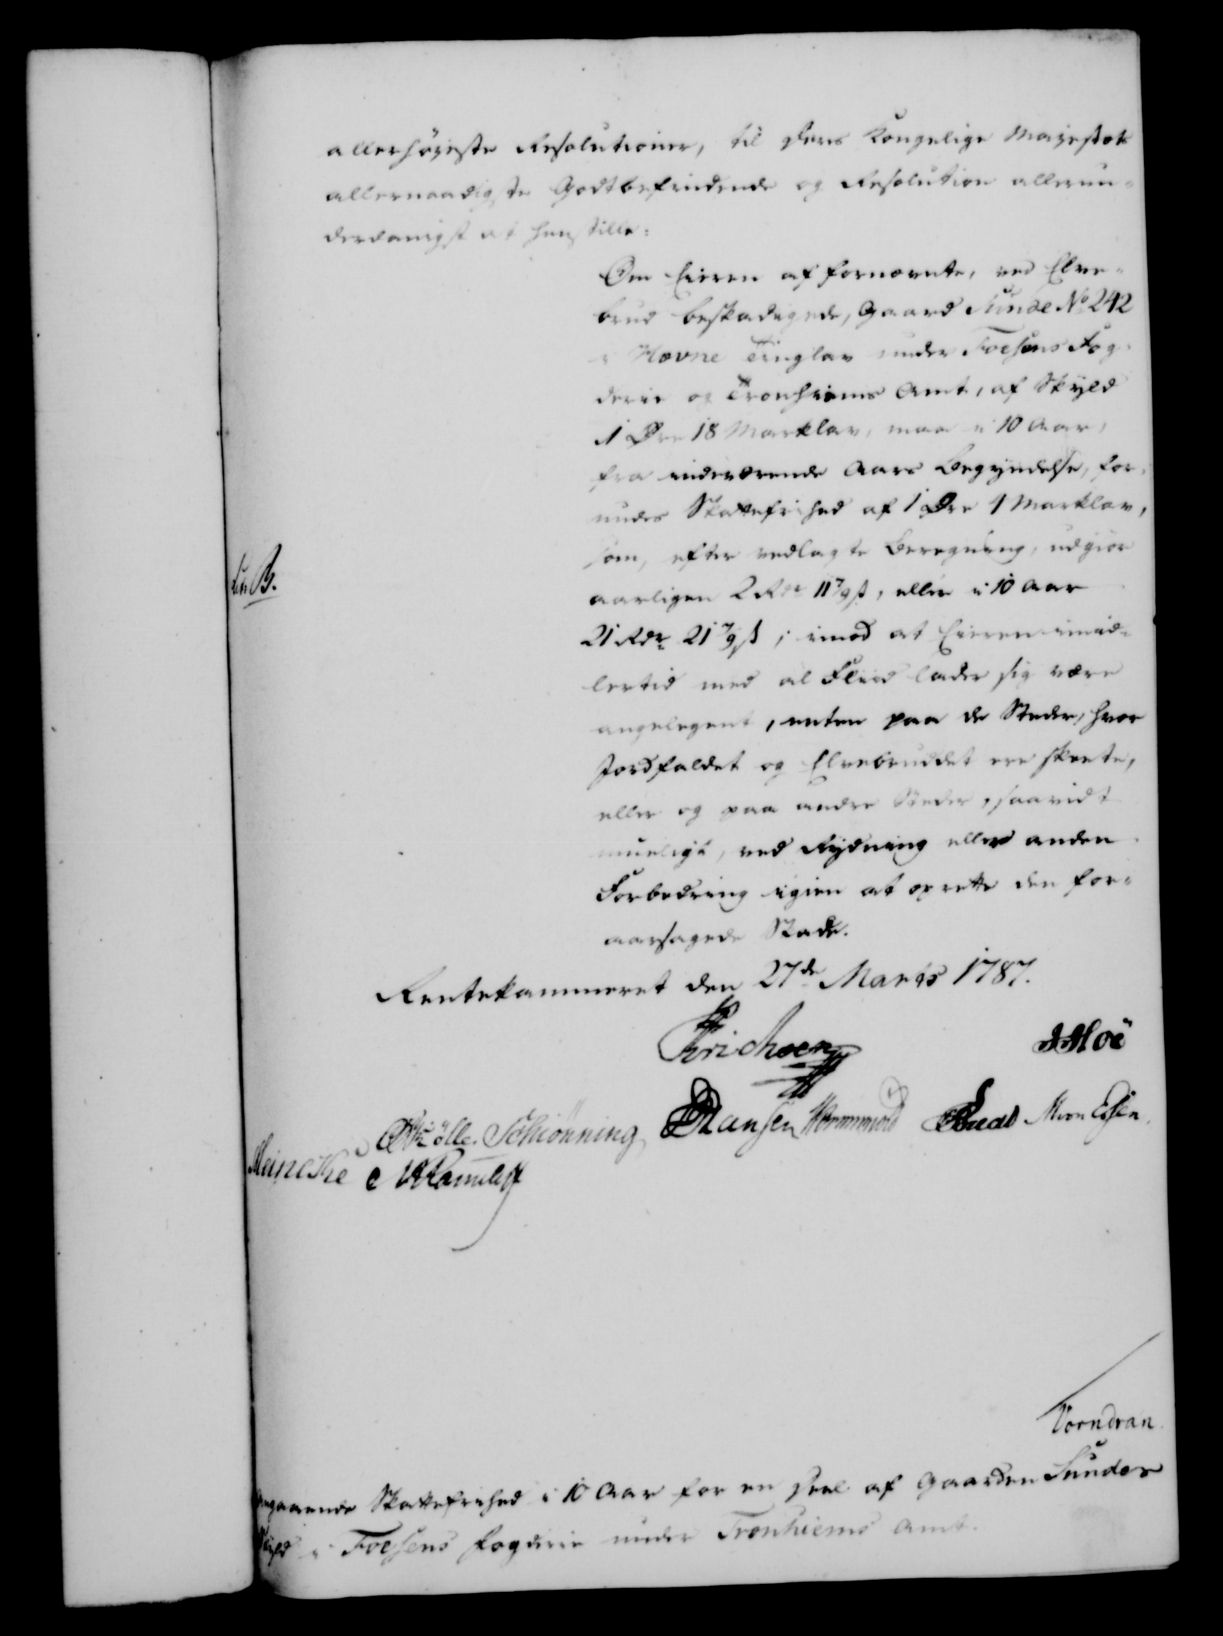 allerhøyeste Resolutioner, til Deres Kongelige Majestets
allernaadigste Godtbefindende og Resolution allerun-
derdanigst at henstille:
Om Eieren af fornævnte, ved Elve-
brud beskadigede, Gaard Sunde No 242
i Hevne Tinglav under Foesens Fog-
derie og Tronhiems Amt, af Skyld
1 Øre 18 Marklav, maa i 10 Aar,
fra indeværende Aars Begyndelse, for-
undes Skattefrihed af 1 Øre 1 Marklav,
som, efter vedlagte Beregning, udgiør
Litr. B.
aarligen 2 Rdr 11 7/9 ß, eller i 10 Aar
21 Rdr 21 7/9 ß; imod at Eieren imid-
lertid med al Fliid lader sig være
angelegent, enten paa de Steder, hvor
Jordfaldet og Elvebruddet ere skeete,
eller og paa andre Steder, saavidt
mueligt, ved Rydning eller anden
Forbedring igien at oprette den for-
aarsagede Skade.
Rentekammeret den 27de Marts 1787.
Erichsen
JHoë
Mölle. Schiønning. Hansen Wormskiold
Meincke
Voendran
Angaaende Skattefrihed i 10 Aar for en Deel af Gaarden Sundes
Skyld i Foesens Fogderie under Tronhiems Amt.